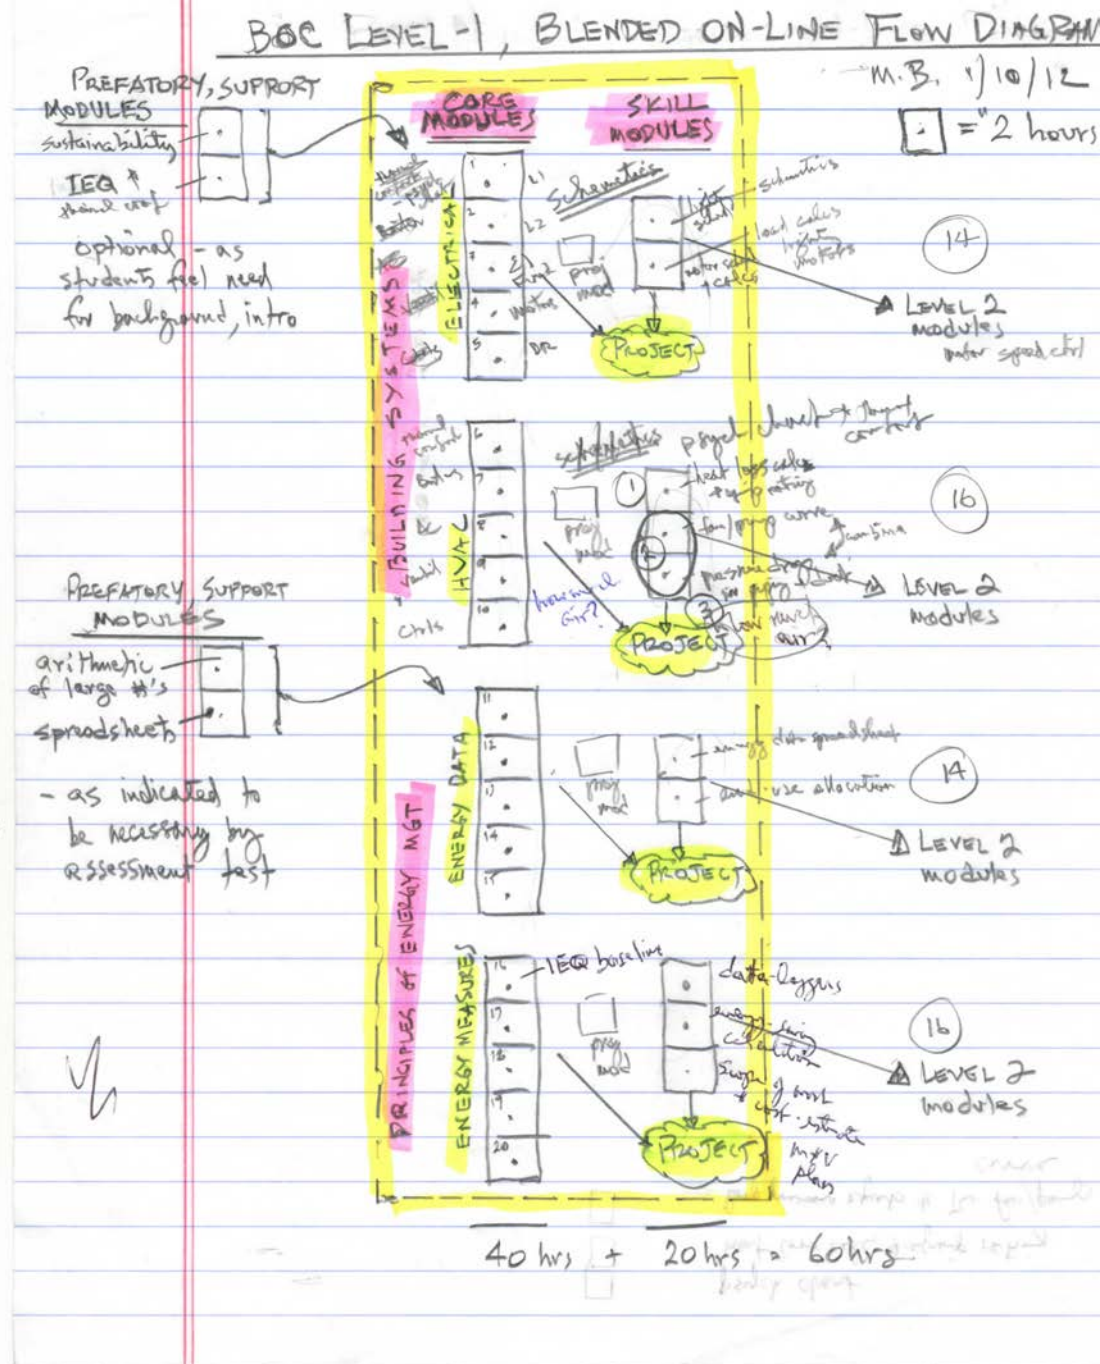 BOC LEVEL-1, BLENDED ON-LINE FLOW DIAGRAM
M.B. 1/10/12
= 2 hours
PREFATORY, SUPPORT
MODULES
sustainability
IEQ &
optional - as
students feel need
for background, intro
CORE
MODULES
SKILL
MODULES
BUILDING SYSTEMS
ELECTRICAL
1
L1
2
L2
3
4
Motors
5
DR
schematics
proj
mod
schematics
load calcs
light
motors
+ calcs
PROJECT
14
LEVEL 2
modules
motor speed ctrl
HVAC
6
7
8
9
10
thermal
comfort
Ctrls
schematics
psych chart & thermal
comfort
1
heat loss calcs
proj
mod
2
fan/pump curve
combine
pressure drop
3
PROJECT
16
LEVEL 2
modules
PREFATORY, SUPPORT
MODULES
arithmetic
of large #'s
spreadsheets
- as indicated to
be necessary by
assessment test
PRINCIPLES of ENERGY MGT
ENERGY DATA
11
12
13
14
15
proj
mod
energy data spreadsheet
end-use allocation
PROJECT
14
LEVEL 2
modules
ENERGY MEASURES
16
17
18
19
20
IEQ baseline
proj
mod
data-loggers
energy-saving
calculation
scope of work
& cost-estimate
M&V
plan
PROJECT
16
LEVEL 2
modules
40 hrs + 20 hrs = 60 hrs